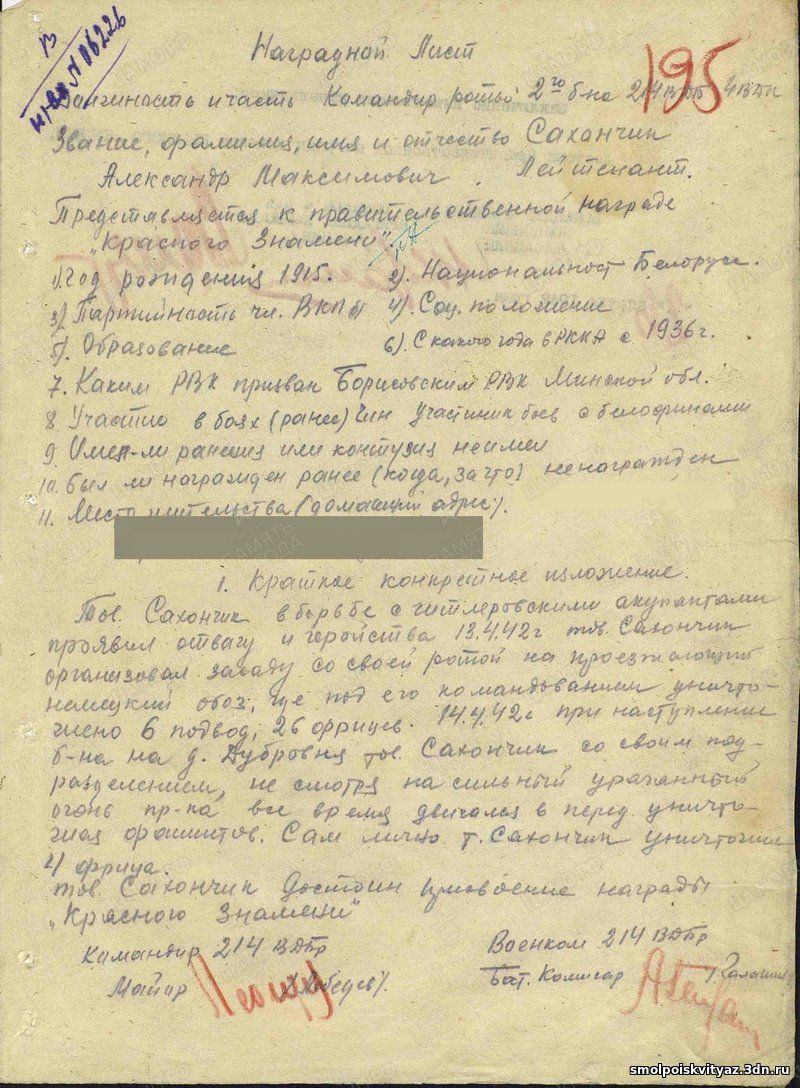 В
Наградной Лист
195
Должность и часть Командир роты 2го б-на 214 ВДБ 4 ВДК
Звание, фамилия, имя и отчество Сахончик
Александр Максимович. Лейтенант.
Представляется к правительственной награде
"Красного Знамени".
1) Год рождения 1915. 2). Национальност Белорус.
3) Партийность чл. ВКПб 4). Соц. положение
5). Образование 6). С какого года в РККА с 1936 г.
7. Каким РВК призван Борисовским РВК Минской обл.
8. Участие в боях (ранее) Участник боев с белофинами
9. Имел-ли ранения или контузия не имел
10. Был ли награжден ранее (когда, за что) ненагражден
11. Место жительства (домашний адрес).
1. Краткое конкретное изложение.
Тов. Сахончик в борьбе с гитлеровскими акупантами
проявил отвагу и геройства 13.4.42г тов. Сахончик
организовал засаду со своей ротой на проезжающий
немецкий обоз, где под его командованием уничто-
жено 6 подвод, 26 фрицев. 14.4.42г при наступлении
б-на на д. Дубровня тов. Сахончик со своим под-
разделением, не смотря на сильный ураганный
огонь пр-ка, все время двигался в перед уничто-
жая фашитов. Сам лично т. Сахончик уничтожил
4 фрица.
тов. Сахончик Достоин присвоение награды
"Красного Знамени"
Командир 214 ВДБр Военком 214 ВДБр
Майор /Лебедев/. Бат. Комисар
smolpoiskvityaz.3dn.ru